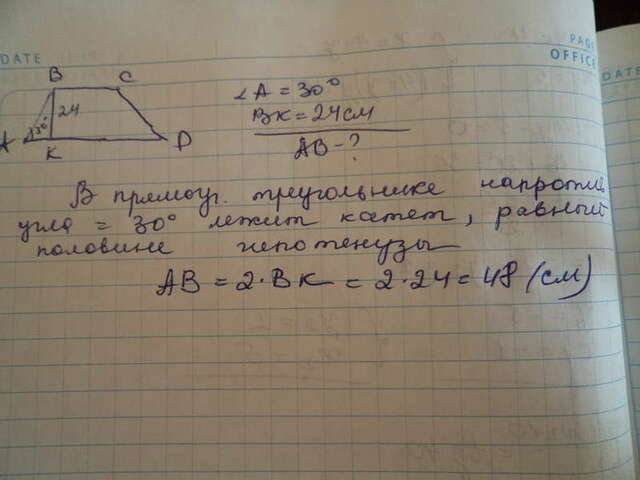 DATE
PAGE
OFFICE
DATE
B C
24
30°
A K D
∠A = 30°
BK = 24 см
AB - ?
В прямоуг. треугольнике напротив
угла = 30° лежит катет, равный
половине гепотенузы
AB = 2·BK = 2·24 = 48 (см)